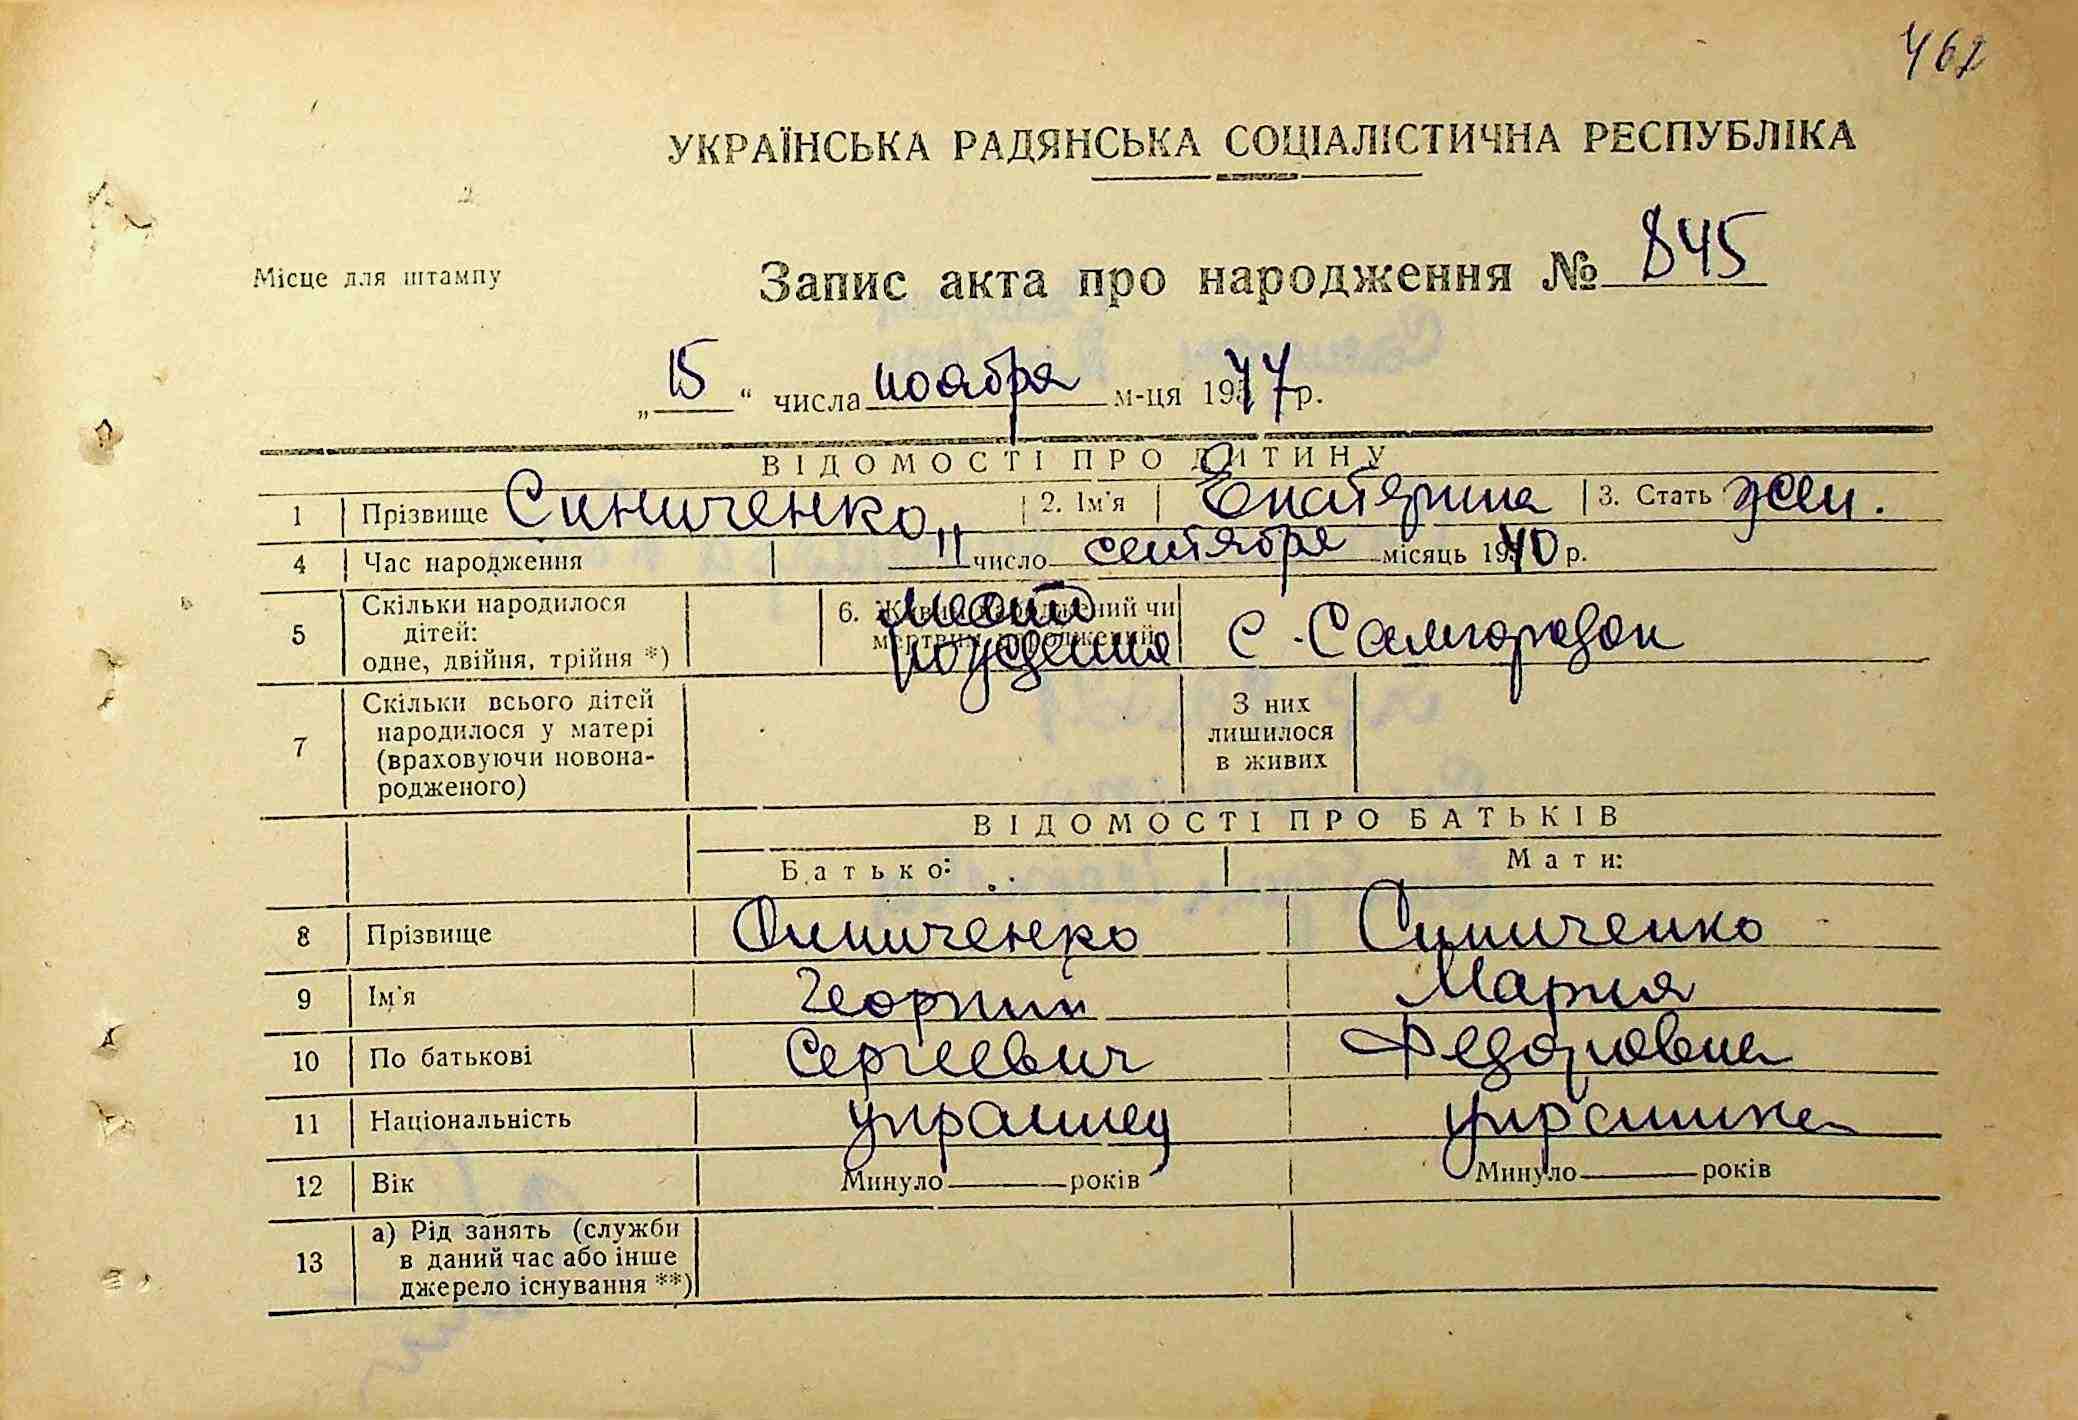 462
УКРАЇНСЬКА РАДЯНСЬКА СОЦІАЛІСТИЧНА РЕСПУБЛІКА
Місце для штампу
Запис акта про народження № 845
„ 15 “ числа ноября м-ця 1947 р.
ВІДОМОСТІ ПРО ДИТИНУ
1 Прізвище Синиченко 2. Ім'я Екатерина 3. Стать жен.
4 Час народження 11 число сентября місяць 1940 р.
5 Скільки народилося дітей: одне, двійня, трійня *) 6. Живим народжений чи мертвим народжений Место рождения с. Самгородок
7 Скільки всього дітей народилося у матері (враховуючи новонародженого) З них лишилося в живих
ВІДОМОСТІ ПРО БАТЬКІВ
Батько: Мати:
8 Прізвище Синиченко Синиченко
9 Ім'я Георгий Мария
10 По батькові Сергеевич Федоровна
11 Національність украинец украинка
12 Вік Минуло років Минуло років
13 а) Рід занять (служби в даний час або інше джерело існування **)